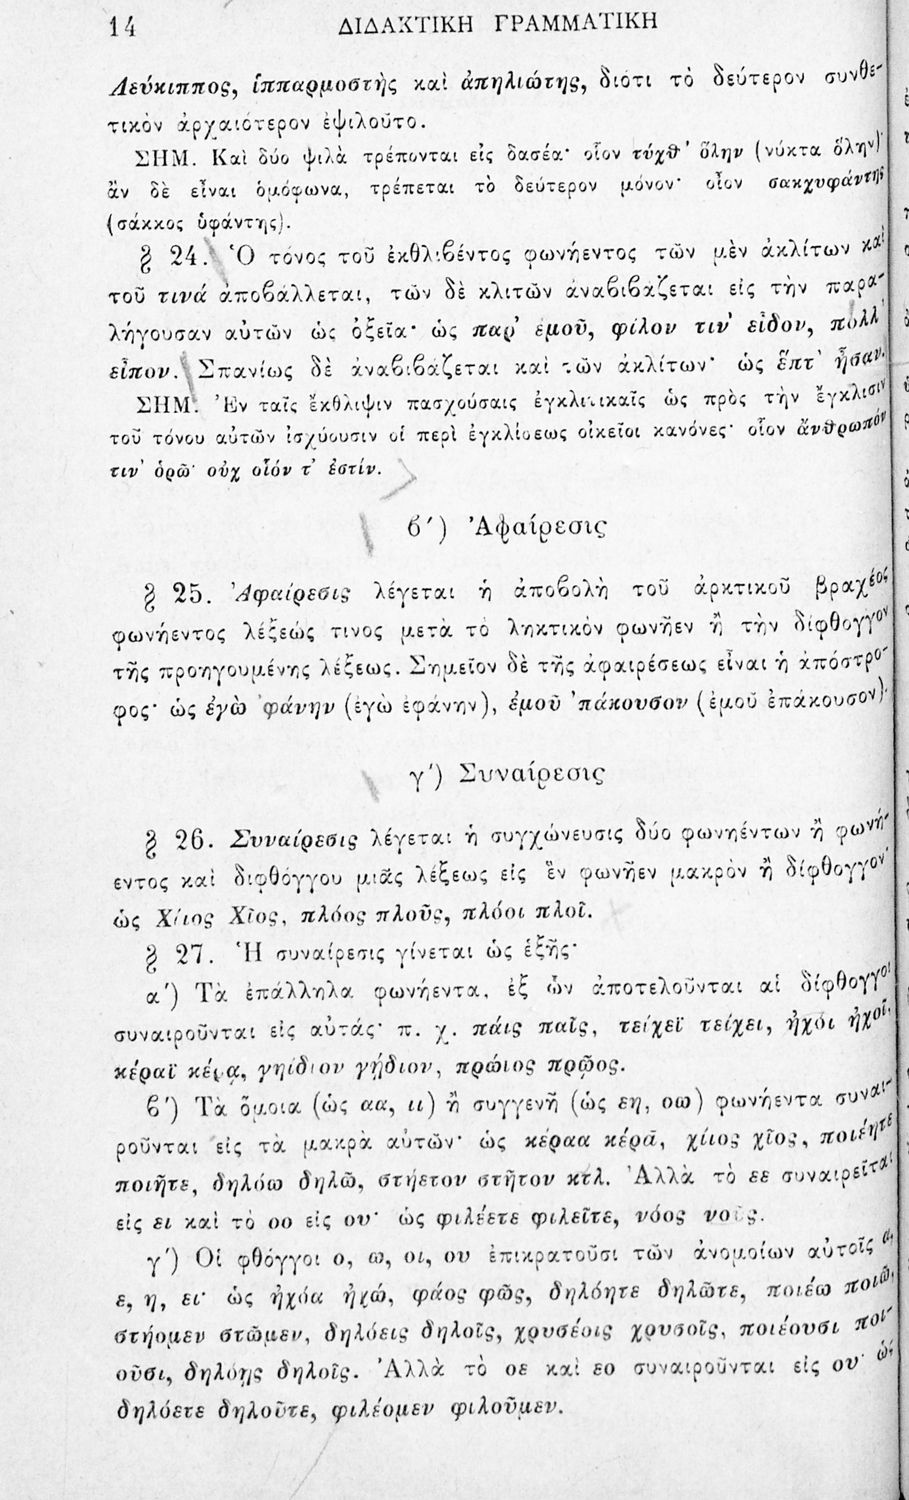 14 ΔΙΔΑΚΤΙΚΗ ΓΡΑΜΜΑΤΙΚΗ
Λεύκιππος, ἱππαρμοστὴς καὶ ἀπηλιώτης, διότι τὸ δεύτερον συνθε-
τικὸν ἀρχαιότερον ἐψιλοῦτο.
ΣΗΜ. Καὶ δύο ψιλὰ τρέπονται εἰς δασέα· οἷον τύχθ' ὅλην (νύκτα ὅλην)·
ἂν δὲ εἶναι ὁμόφωνα, τρέπεται τὸ δεύτερον μόνον· οἷον σακχυφάντης
(σάκκος ὑφάντης).
§ 24. Ὁ τόνος τοῦ ἐκθλιβέντος φωνήεντος τῶν μὲν ἀκλίτων καὶ
τοῦ τινά ἀποβάλλεται, τῶν δὲ κλιτῶν ἀναβιβάζεται εἰς τὴν παρα-
λήγουσαν αὐτῶν ὡς ὀξεῖα· ὡς παρ' ἐμοῦ, φίλον τιν' εἶδον, πόλλ'
εἶπον. Σπανίως δὲ ἀναβιβάζεται καὶ τῶν ἀκλίτων· ὡς ἕπτ' ἦσαν.
ΣΗΜ. Ἐν ταῖς ἔκθλιψιν πασχούσαις ἐγκλιτικαῖς ὡς πρὸς τὴν ἔγκλισιν
τοῦ τόνου αὐτῶν ἰσχύουσιν οἱ περὶ ἐγκλίσεως οἰκεῖοι κανόνες· οἷον ἄνθρωπόν
τιν' ὁρῶ· οὐχ οἷόν τ' ἐστίν.
ϐ') Ἀφαίρεσις
§ 25. Ἀφαίρεσις λέγεται ἡ ἀποβολὴ τοῦ ἀρκτικοῦ βραχέος
φωνήεντος λέξεώς τινος μετὰ τὸ ληκτικὸν φωνῆεν ἢ τὴν δίφθογγον
τῆς προηγουμένης λέξεως. Σημεῖον δὲ τῆς ἀφαιρέσεως εἶναι ἡ ἀπόστρο-
φος· ὡς ἐγὼ 'φάνην (ἐγὼ ἐφάνην), ἐμοῦ 'πάκουσον (ἐμοῦ ἐπάκουσον).
γ') Συναίρεσις
§ 26. Συναίρεσις λέγεται ἡ συγχώνευσις δύο φωνηέντων ἢ φωνή-
εντος καὶ διφθόγγου μιᾶς λέξεως εἰς ἓν φωνῆεν μακρὸν ἢ δίφθογγον·
ὡς Χίιος Χῖος, πλόος πλοῦς, πλόοι πλοῖ.
§ 27. Ἡ συναίρεσις γίνεται ὡς ἑξῆς·
α') Τὰ ἐπάλληλα φωνήεντα, ἐξ ὧν ἀποτελοῦνται αἱ δίφθογγοι
συναιροῦνται εἰς αὐτάς· π. χ. πάις παῖς, τείχεϊ τείχει, ἠχόι ἠχοῖ,
κέραϊ κέρᾳ, γηίδιον γῄδιον, πρώιος πρῷος.
ϐ') Τὰ ὅμοια (ὡς αα, ιι) ἢ συγγενῆ (ὡς εη, οω) φωνήεντα συναι-
ροῦνται εἰς τὰ μακρὰ αὐτῶν· ὡς κέραα κέρᾱ, χίιος χῖος, ποιέητε
ποιῆτε, δηλόω δηλῶ, στήετον στῆτον κτλ. Ἀλλὰ τὸ εε συναιρεῖται
εἰς ει καὶ τὸ οο εἰς ου· ὡς φιλέετε φιλεῖτε, νόος νοῦς.
γ') Οἱ φθόγγοι ο, ω, οι, ου ἐπικρατοῦσι τῶν ἀνομοίων αὐτοῖς α,
ε, η, ει· ὡς ἠχόα ἠχώ, φάος φῶς, δηλόητε δηλῶτε, ποιέω ποιῶ,
στήομεν στῶμεν, δηλόεις δηλοῖς, χρυσέοις χρυσοῖς, ποιέουσι ποι-
οῦσι, δηλόῃς δηλοῖς. Ἀλλὰ τὸ οε καὶ εο συναιροῦνται εἰς ου· ὡς
δηλόετε δηλοῦτε, φιλέομεν φιλοῦμεν.